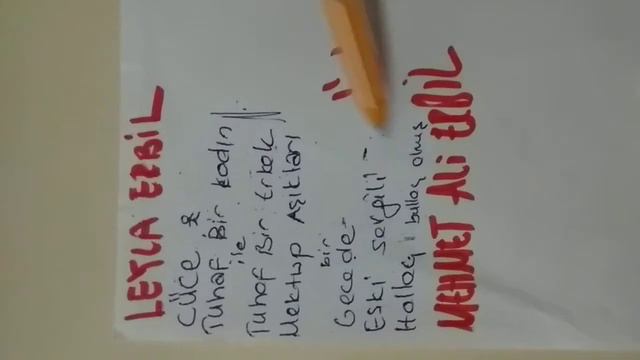 LEYLA ERBİL
CÜCE &
Tuhaf Bir Kadın
ile
Tuhaf Bir Erkek
Mektup Aşıkları
bir
Gecede -
Eski Sevgili -
Hallaç bullaç olmuş
MEHMET Ali ERBİL